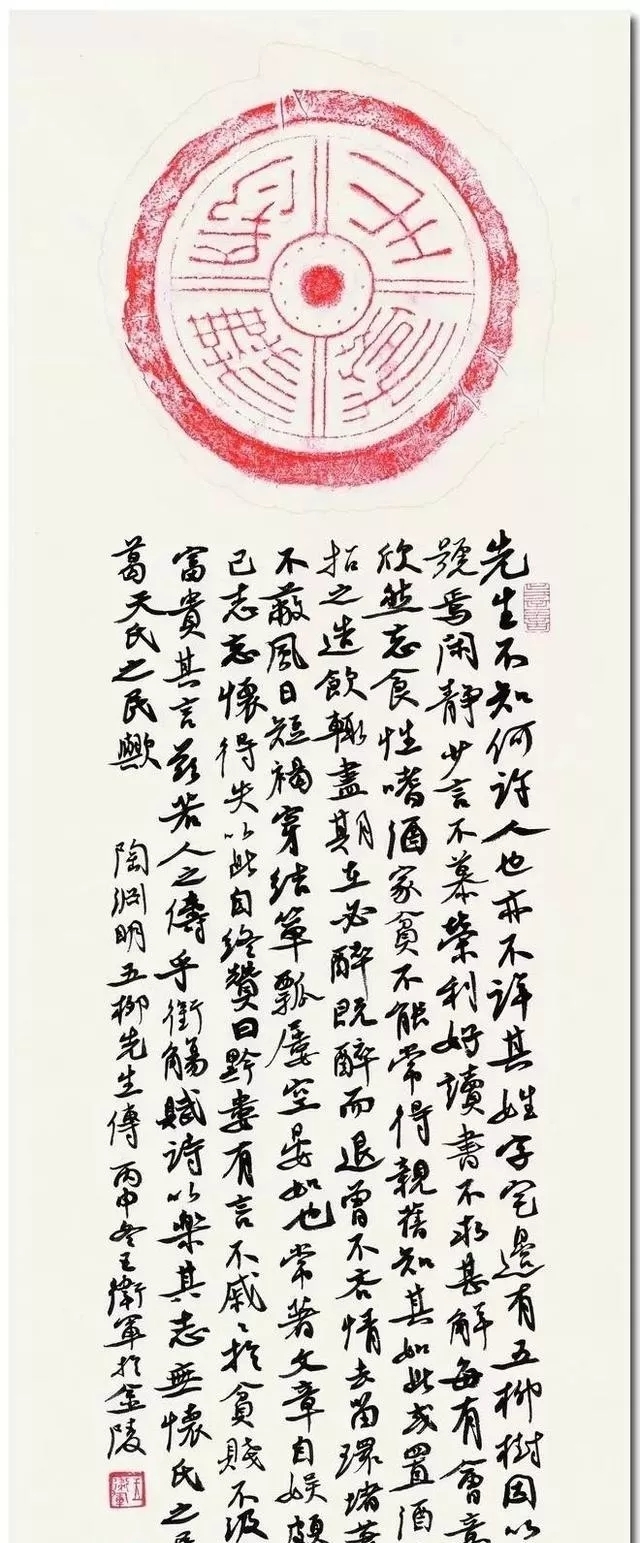 先生不知何許人也亦不詳其姓字宅邊有五柳樹因以
號焉閑靜少言不慕榮利好讀書不求甚解每有會意
欣然忘食性嗜酒家貧不能常得親舊知其如此或置酒
招之造飲輒盡期在必醉既醉而退曾不吝情去留環堵
不蔽風日短褐穿結簞瓢屢空晏如也常著文章自娛頗
己志忘懷得失以此自終贊曰黔婁有言不戚〻於貧賤不汲
富貴其言茲若人之儔乎銜觴賦詩以樂其志無懷氏之
葛天氏之民歟
陶淵明五柳先生傳 丙申冬王衛軍於金陵